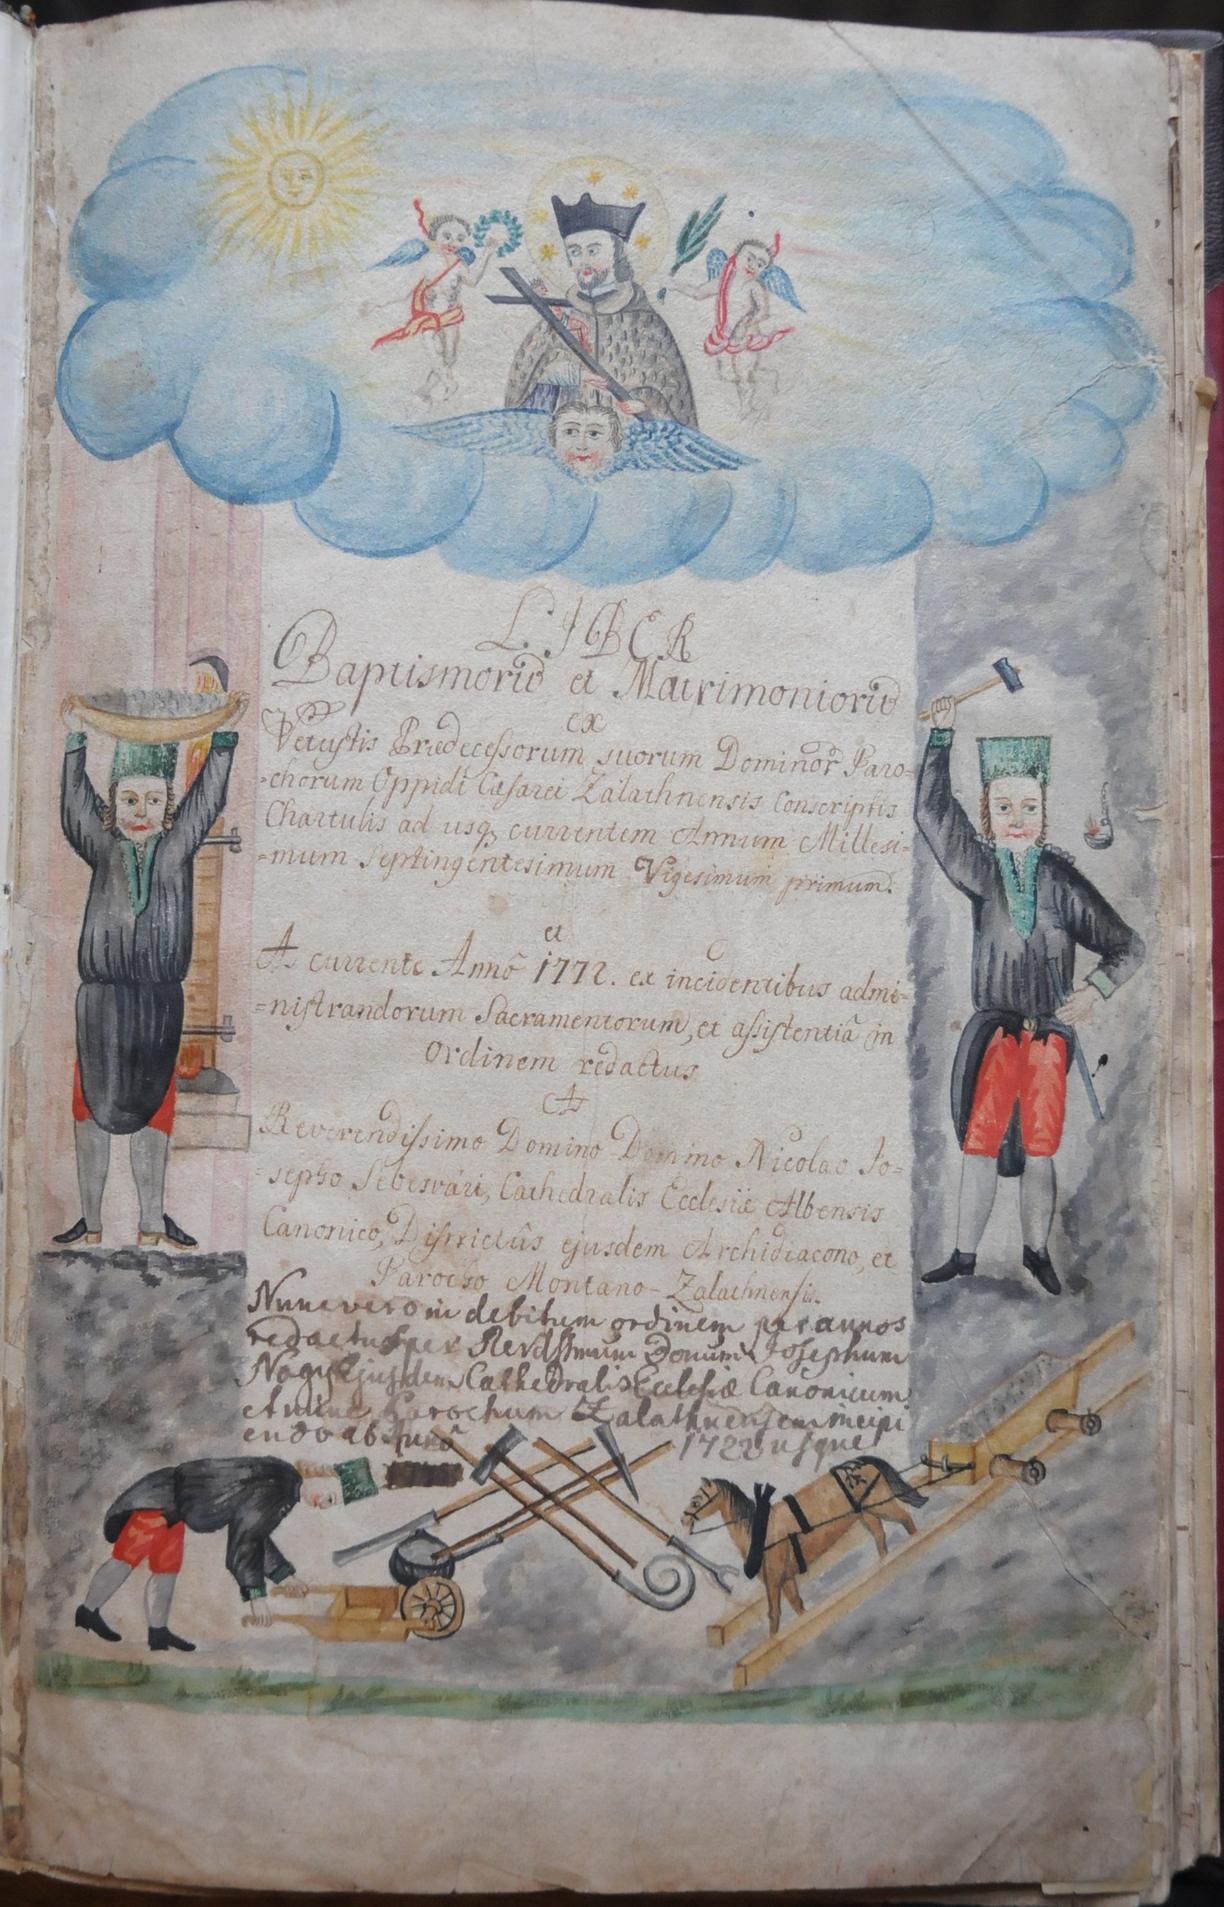 LIBER
Baptismorũ et Matrimoniorũ
ex
Vetustis Prædecessorum suorum Dominor̃ Paro-
-chorum Oppidi Cæsarei Zalathnensis Conscriptis
Chartulis ad usq₃ currentem Annum Millesi-
-mum Septingentesimum Vigesimum primum.
et
A currente Annô 1772. ex incidentibus admi-
-nistrandorum Sacramentorum, et assistentiâ in
Ordinem redactus
A
Reverendissimo Domino Domino Nicolao Jo-
-sepho Sebesvári, Cathedralis Ecclesiæ Albensis
Canonico, Districtûs ejusdem Archidiacono, et
Parocho Montano-Zalathnensi.
Nunc vero in debitum ordinem per annos
redactus per Revdssimum Donum Josephum
Nagy Ejusdem Cathedralis Ecclesiæ Canonicum
et nunc Parochum Zalathnensem incipi
endo ab Annô 1722 usque